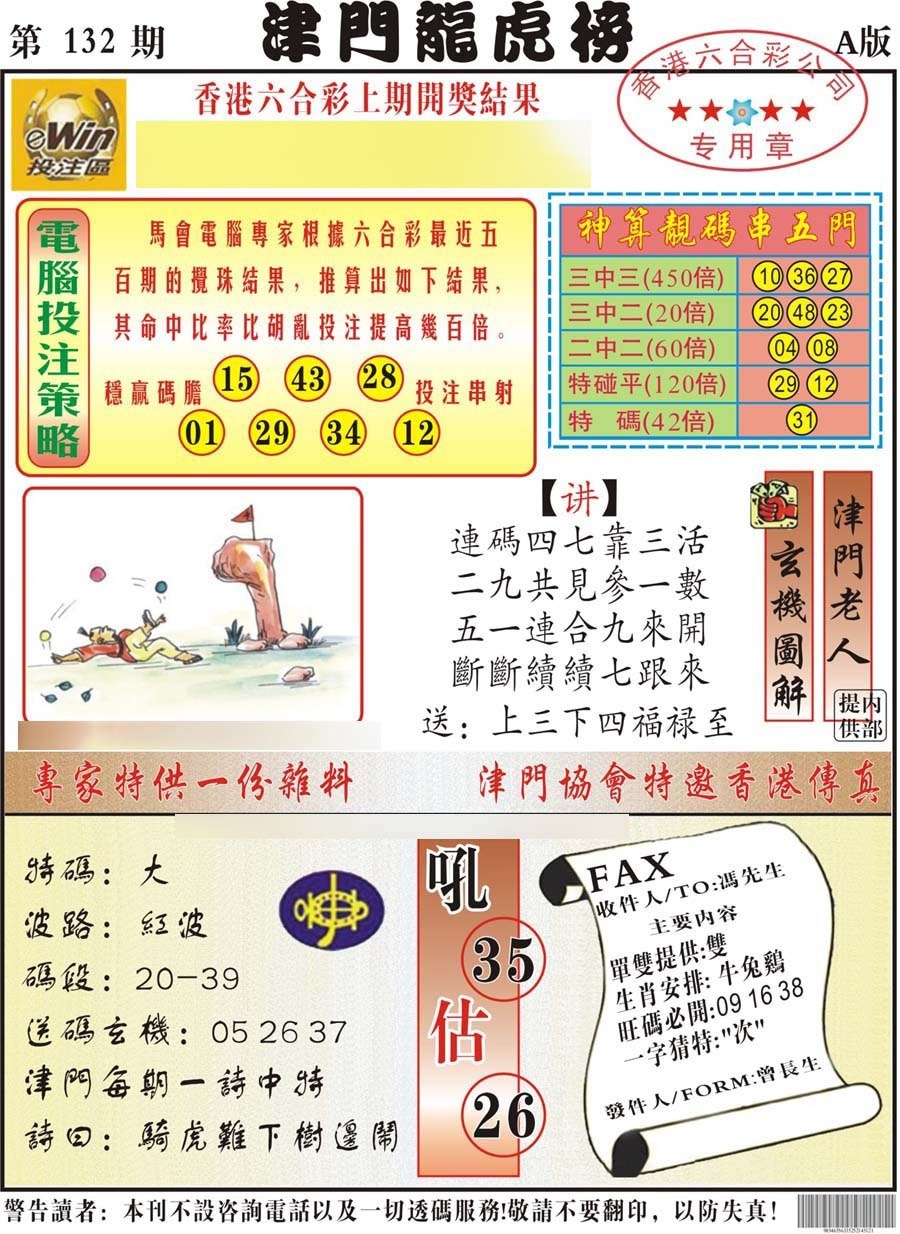 第 132 期
津門龍虎榜
A版
eWin
投注區
香港六合彩上期開獎結果
香港六合彩公司
★★★★
专用章
電腦投注策略
馬會電腦專家根據六合彩最近五
百期的攪珠結果，推算出如下結果，
其命中比率比胡亂投注提高幾百倍。
穩贏碼膽 15 43 28 投注串射
01 29 34 12
神算靚碼串五門
三中三(450倍) 10 36 27
三中二(20倍) 20 48 23
二中二(60倍) 04 08
特碰平(120倍) 29 12
特 碼(42倍) 31
【讲】
連碼四七靠三活
二九共見參一數
五一連合九來開
斷斷續續七跟來
送：上三下四福禄至
玄機圖解
津門老人
內部
提供
專家特供一份雜料
津門協會特邀香港傳真
特碼：大
波路：紅波
碼段：20-39
送碼玄機：05 26 37
津門每期一詩中特
詩曰：騎虎難下樹邊鬧
吼
35
估
26
FAX
收件人/TO:馮先生
主要內容
單雙提供:雙
生肖安排: 牛兔鷄
旺碼必開:09 16 38
一字猜特:"次"
發件人/FORM:曾長生
警告讀者：本刊不設咨詢電話以及一切透碼服務!敬請不要翻印，以防失真!